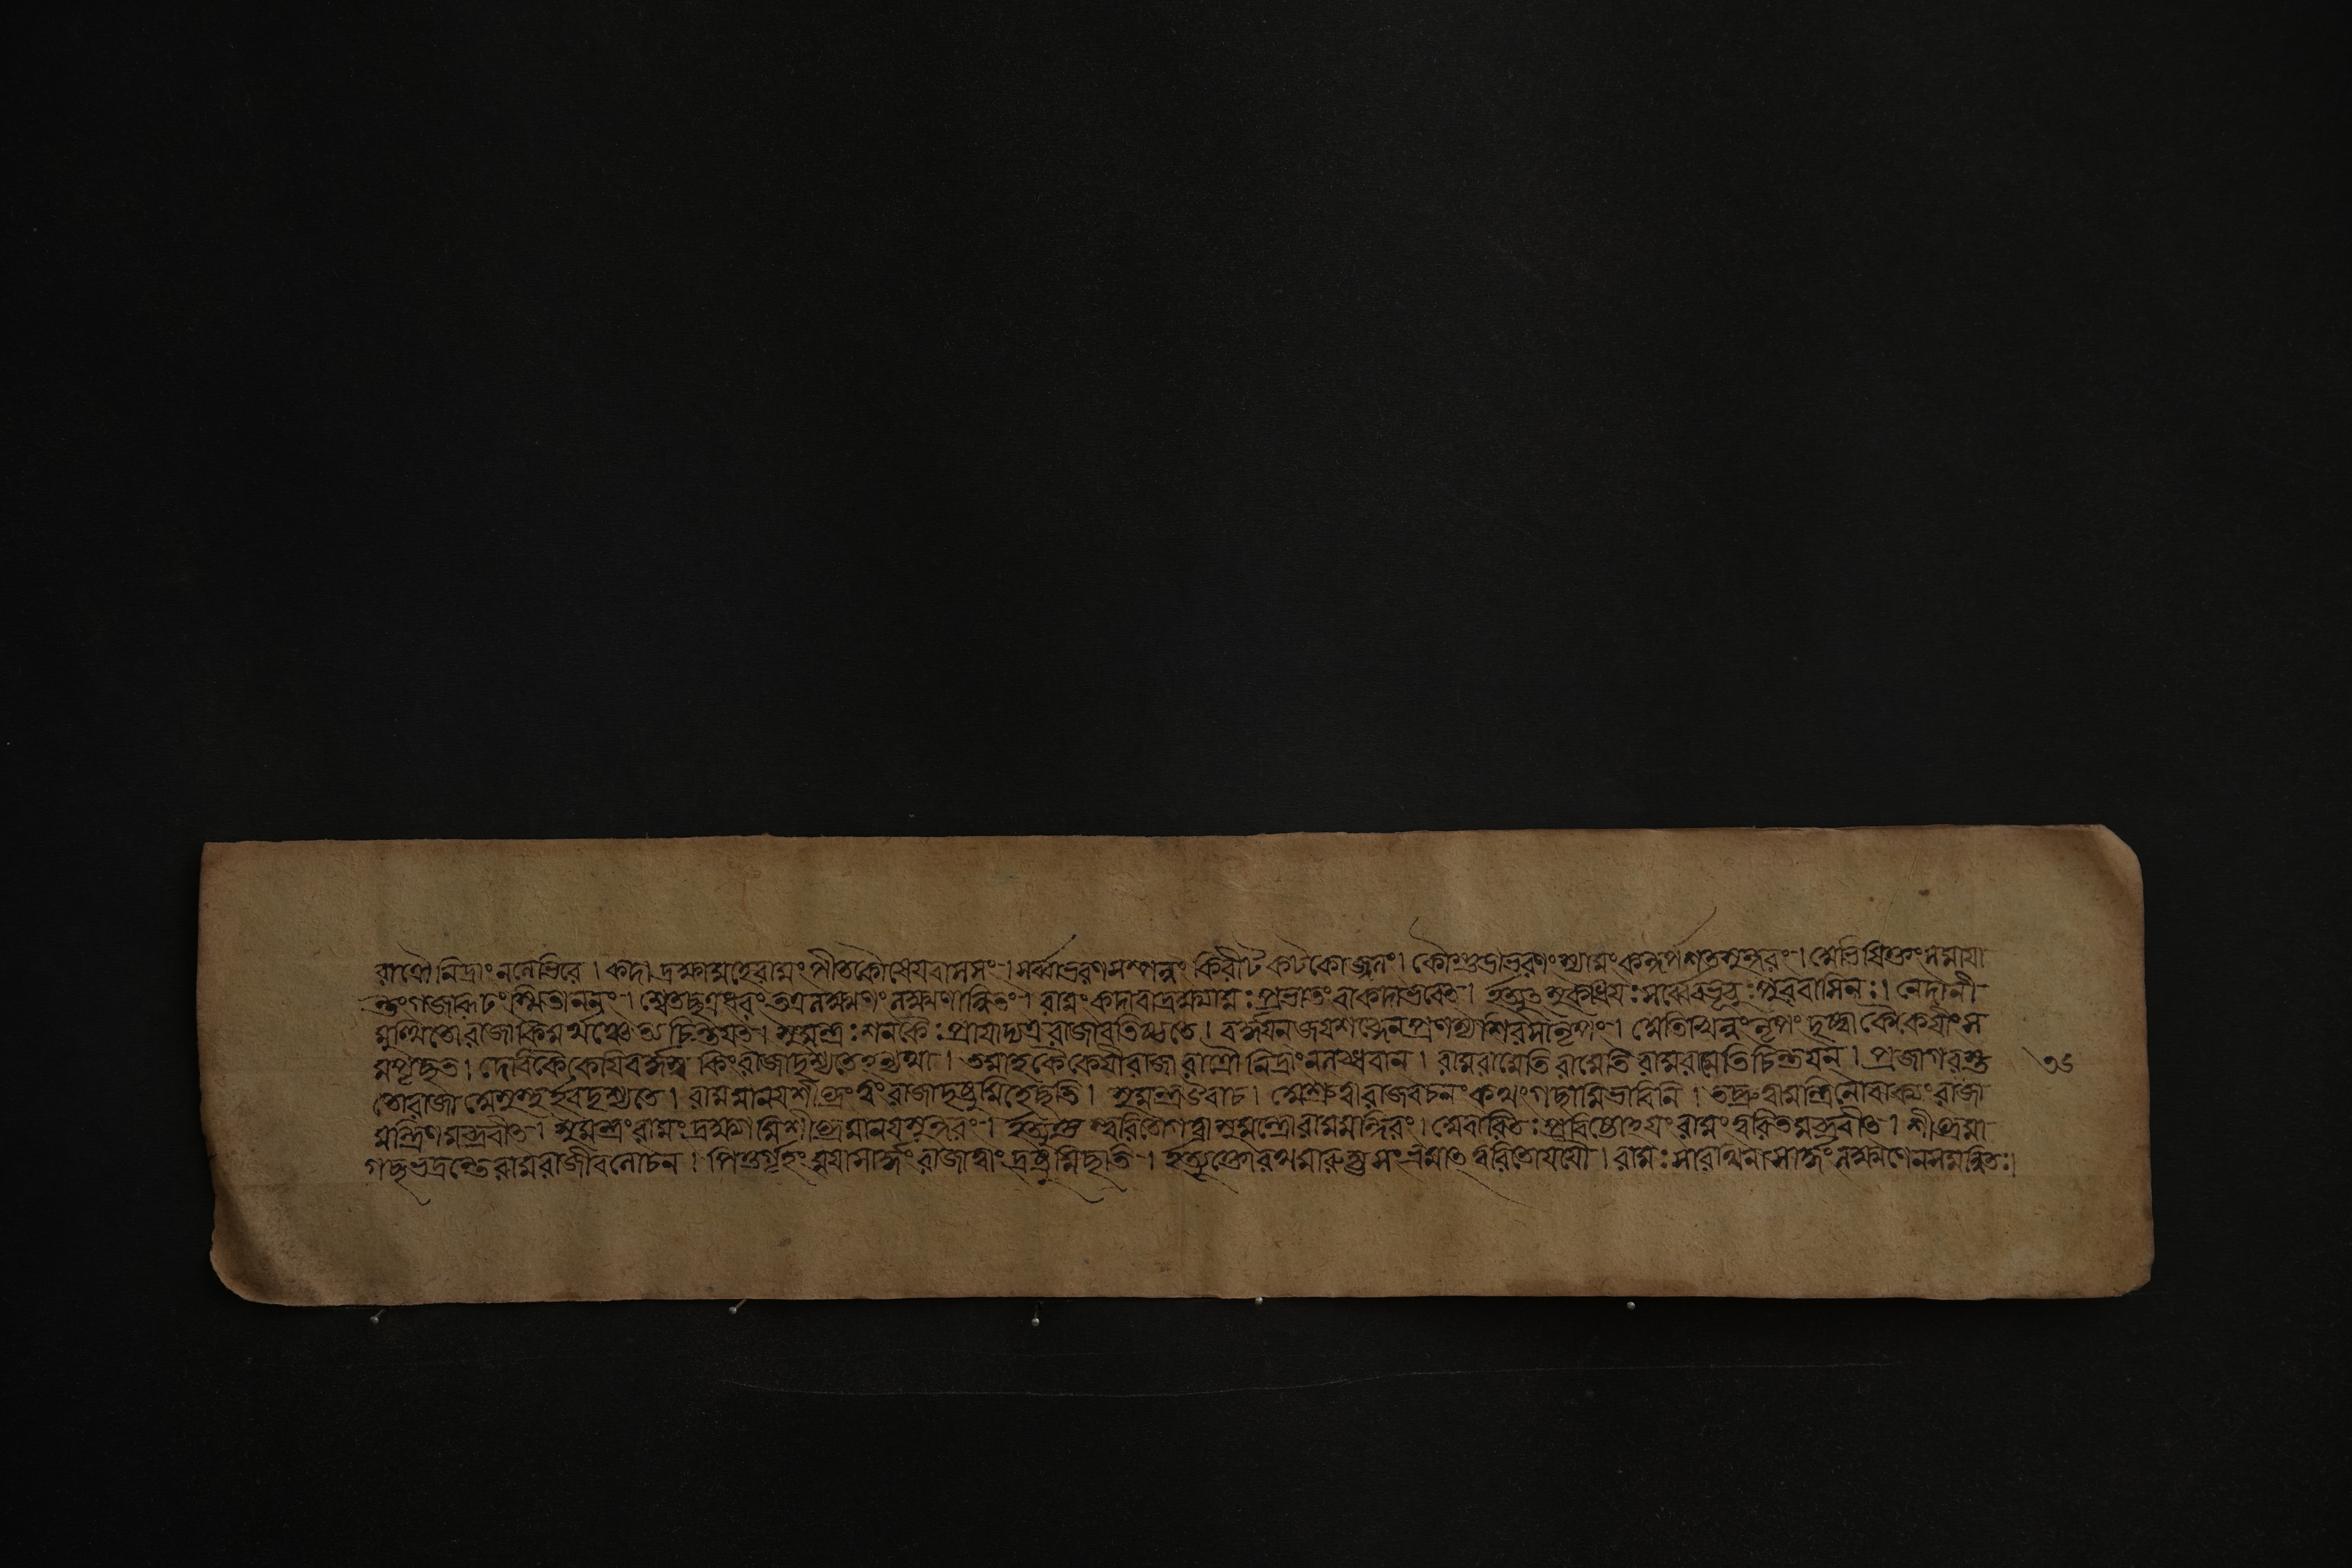 রাত্রৌ নিদ্রাং ন লেভিরে । কদা দ্রক্ষ্যামহে রামং পীতকৌষেয়বাসসং । সর্ব্বাভরণসম্পন্নং কিরীটকটকোজ্জ্বলং । কৌস্তুভাভরণং শ্যামং কন্দর্পশতসুন্দরং । অভিষিক্তং সমায়া
ন্তং গজারূঢং স্মিতাননং । শ্বেতচ্ছত্রধরং তত্র লক্ষ্মণং লক্ষণান্বিতং । রামং কদা বা দ্রক্ষ্যামঃ প্রভাতং বা কদা ভবেৎ । ইত্যুৎসুকধিয়ঃ সর্ব্বে বভূবুঃ পুরবাসিনঃ । নেদানী
মুত্থিতো রাজা কিমর্থঞ্চেতি চিন্তয়ত । সুমন্ত্রঃ শনকৈঃ প্রায়াদ্যত্র রাজাবতিষ্ঠতে । বর্দ্ধয়ন জয়শব্দেন প্রণম্য শিরসা নৃপং । অতিখিন্নং নৃপং দৃষ্ট্বা কৈকেয়ীং স
মপৃচ্ছত । দেবি কৈকেয়ি বর্দ্ধস্ব কিং রাজা দৃশ্যতেঽন্যথা । তমাহ কৈকেয়ী রাজা রাত্রৌ নিদ্রাং ন লব্ধবান । রাম রামেতি রামেতি রামরামেতি চিন্তয়ন্ । প্রজাগরস্তু ৩৫
তো রাজা অসুস্থ ইব দৃশ্যতে । রামমানয় শীঘ্রং ত্বং রাজা দ্রষ্টুমিহেচ্ছতি । সুমন্ত্র উবাচ । অশ্রুত্বা রাজবচনং কথং গচ্ছামি ভাবিনি । তচ্ছ্রুত্বা মন্ত্রিনো বাক্যং রাজা
মন্ত্রিণমব্রবীৎ । সুমন্ত্রং রামং দ্রক্ষ্যামি শীঘ্রমানয় সুন্দরং । ইত্যুক্ত স্ত্বরিতো গত্বা সুমন্ত্রো রামমন্দিরং । অবারিতঃ প্রবিষ্টোঽয়ং রামং ত্বরিতমব্রবীৎ । শীঘ্রমা
গচ্ছ ভদ্রন্তে রাম রাজীবলোচন । পিতুর্গৃহং ময়া সার্দ্ধং রাজা ত্বাং দ্রষ্টুমিচ্ছতি । ইত্যুক্তো রথমারুহ্য সংভ্রমাৎ ত্বরিতো যযৌ । রামঃ সারথিনা সার্দ্ধং লক্ষ্মণেন সমন্বিতঃ ।